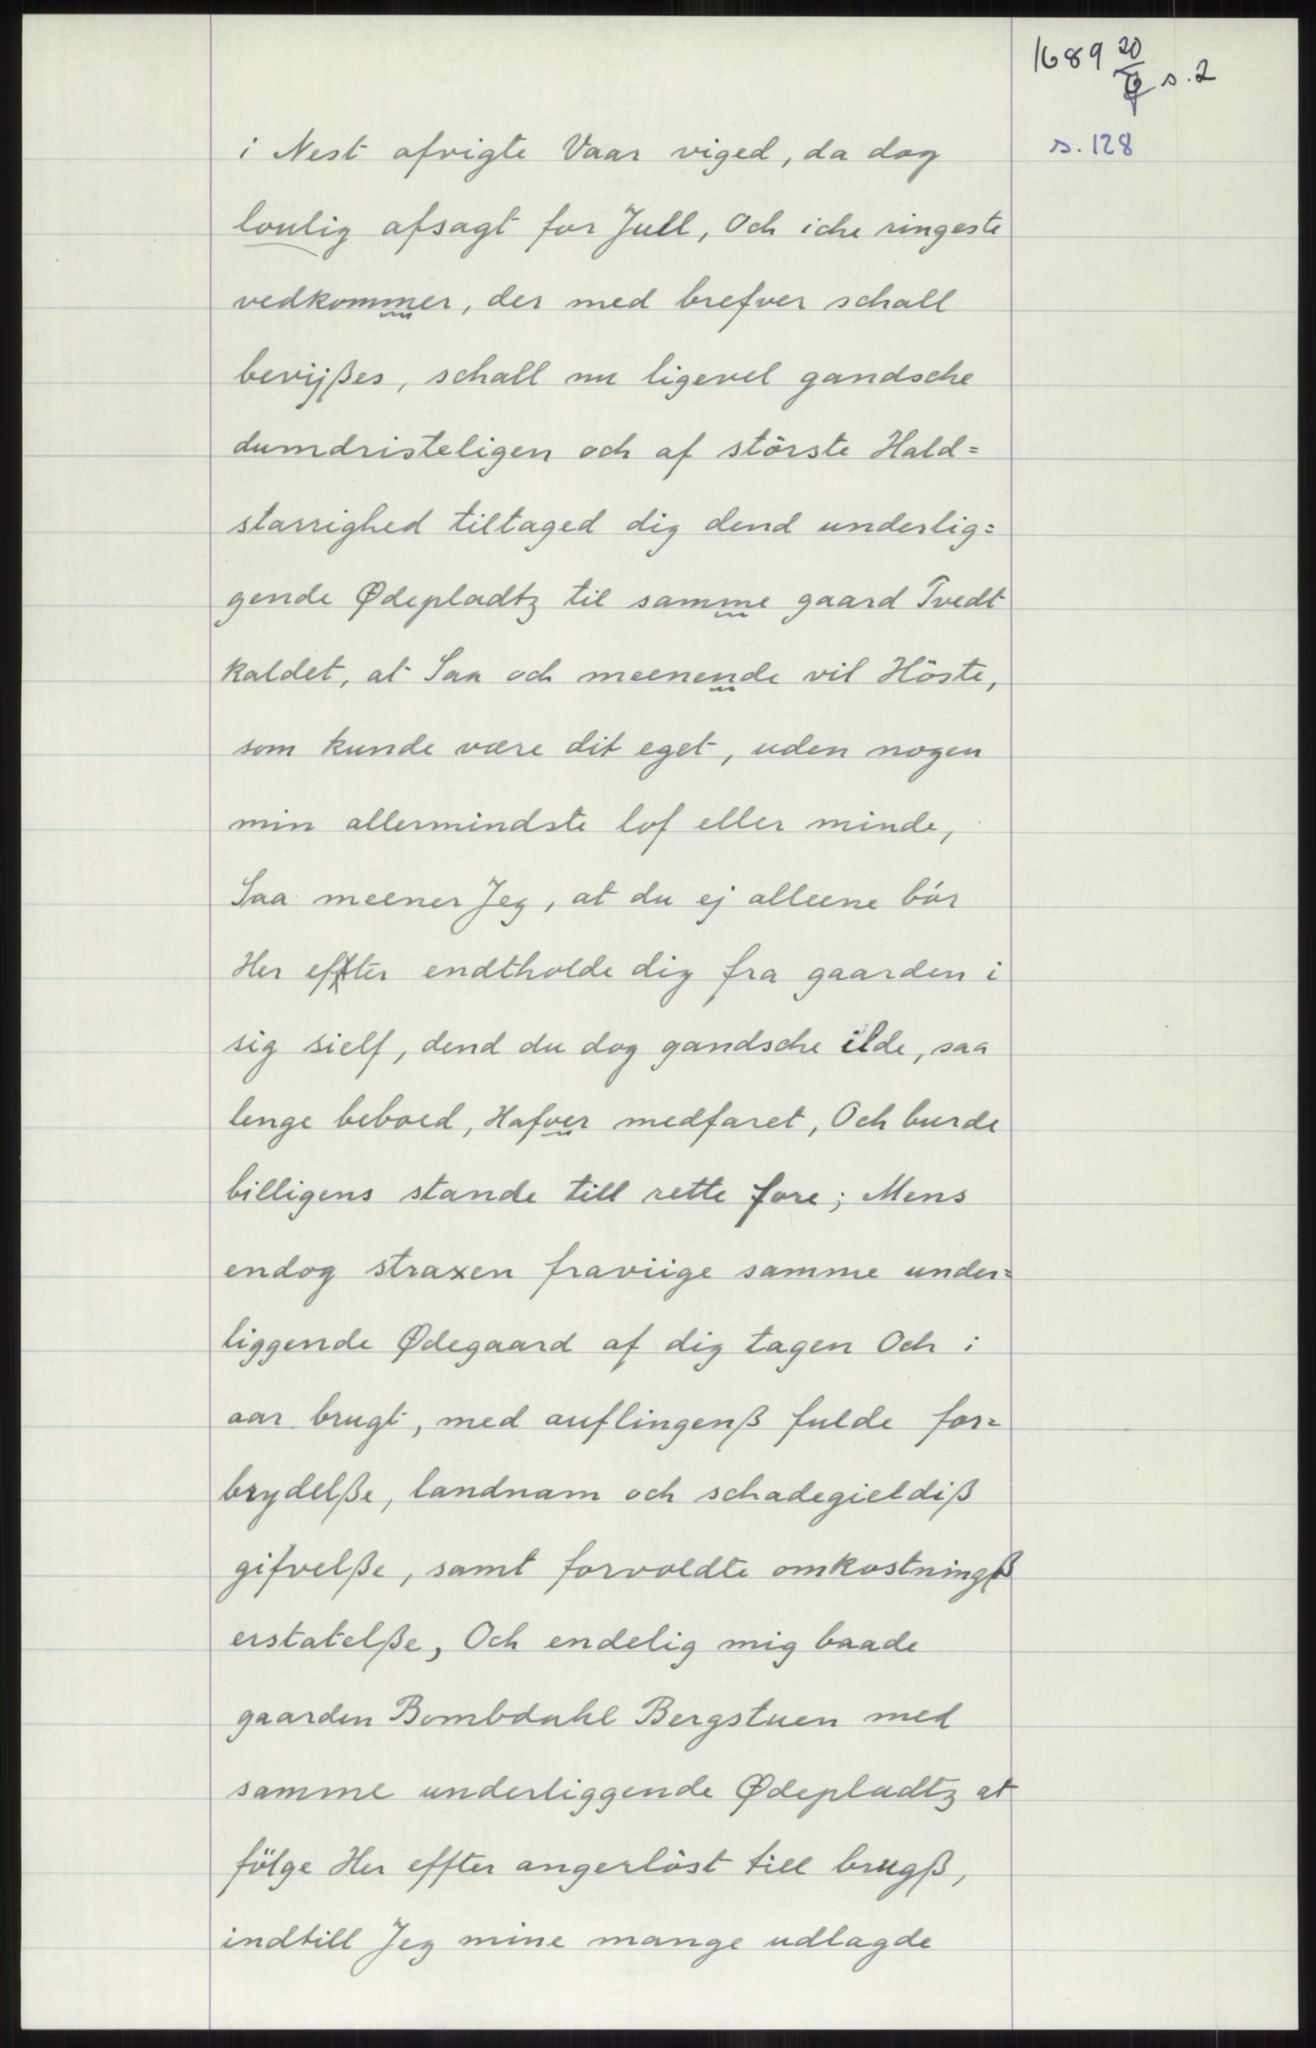 1689 20/9 s. 2
s. 128
i Nest afvigte Vaar viged, da dog
loulig afsagt for Jull, Och iche ringeste
vedkommer, der med brefver schall
bevijßes, schall nu ligevel gandsche
dumdristeligen och af störste Hald=
starrighed tiltaged dig dend underlig=
gende Ødepladtz til samme gaard Tvedt
kaldet, at Saa och meenende vil Höste,
som kunde være dit eget, uden nogen
min allermindste lof eller minde,
Saa meener Jeg, at du ej alleene bör
Her effter endtholde dig fra gaarden i
sig sielf, dend du dog gandsche ilde, saa
lenge beboed, Hafver medfaret, Och burde
billigens stande till rette fore; Mens
endog straxen fraviige samme under=
liggende Ødegaard af dig tagen Och i
aar brugt, med auflingenß fulde for=
brydelße, landnam och schadegieldiß
gifvelße, samt forvoldte omkostningß
erstatelße, Och endelig mig baade
gaarden Bombdahl Bergstuen med
samme underliggende Ødepladtz at
fölge Her effter angerlöst till brugß,
indtill Jeg mine mange udlagde